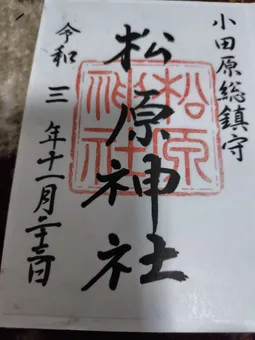 小田原総鎮守
松原神社
松原
神社
令和三年十一月二十三日